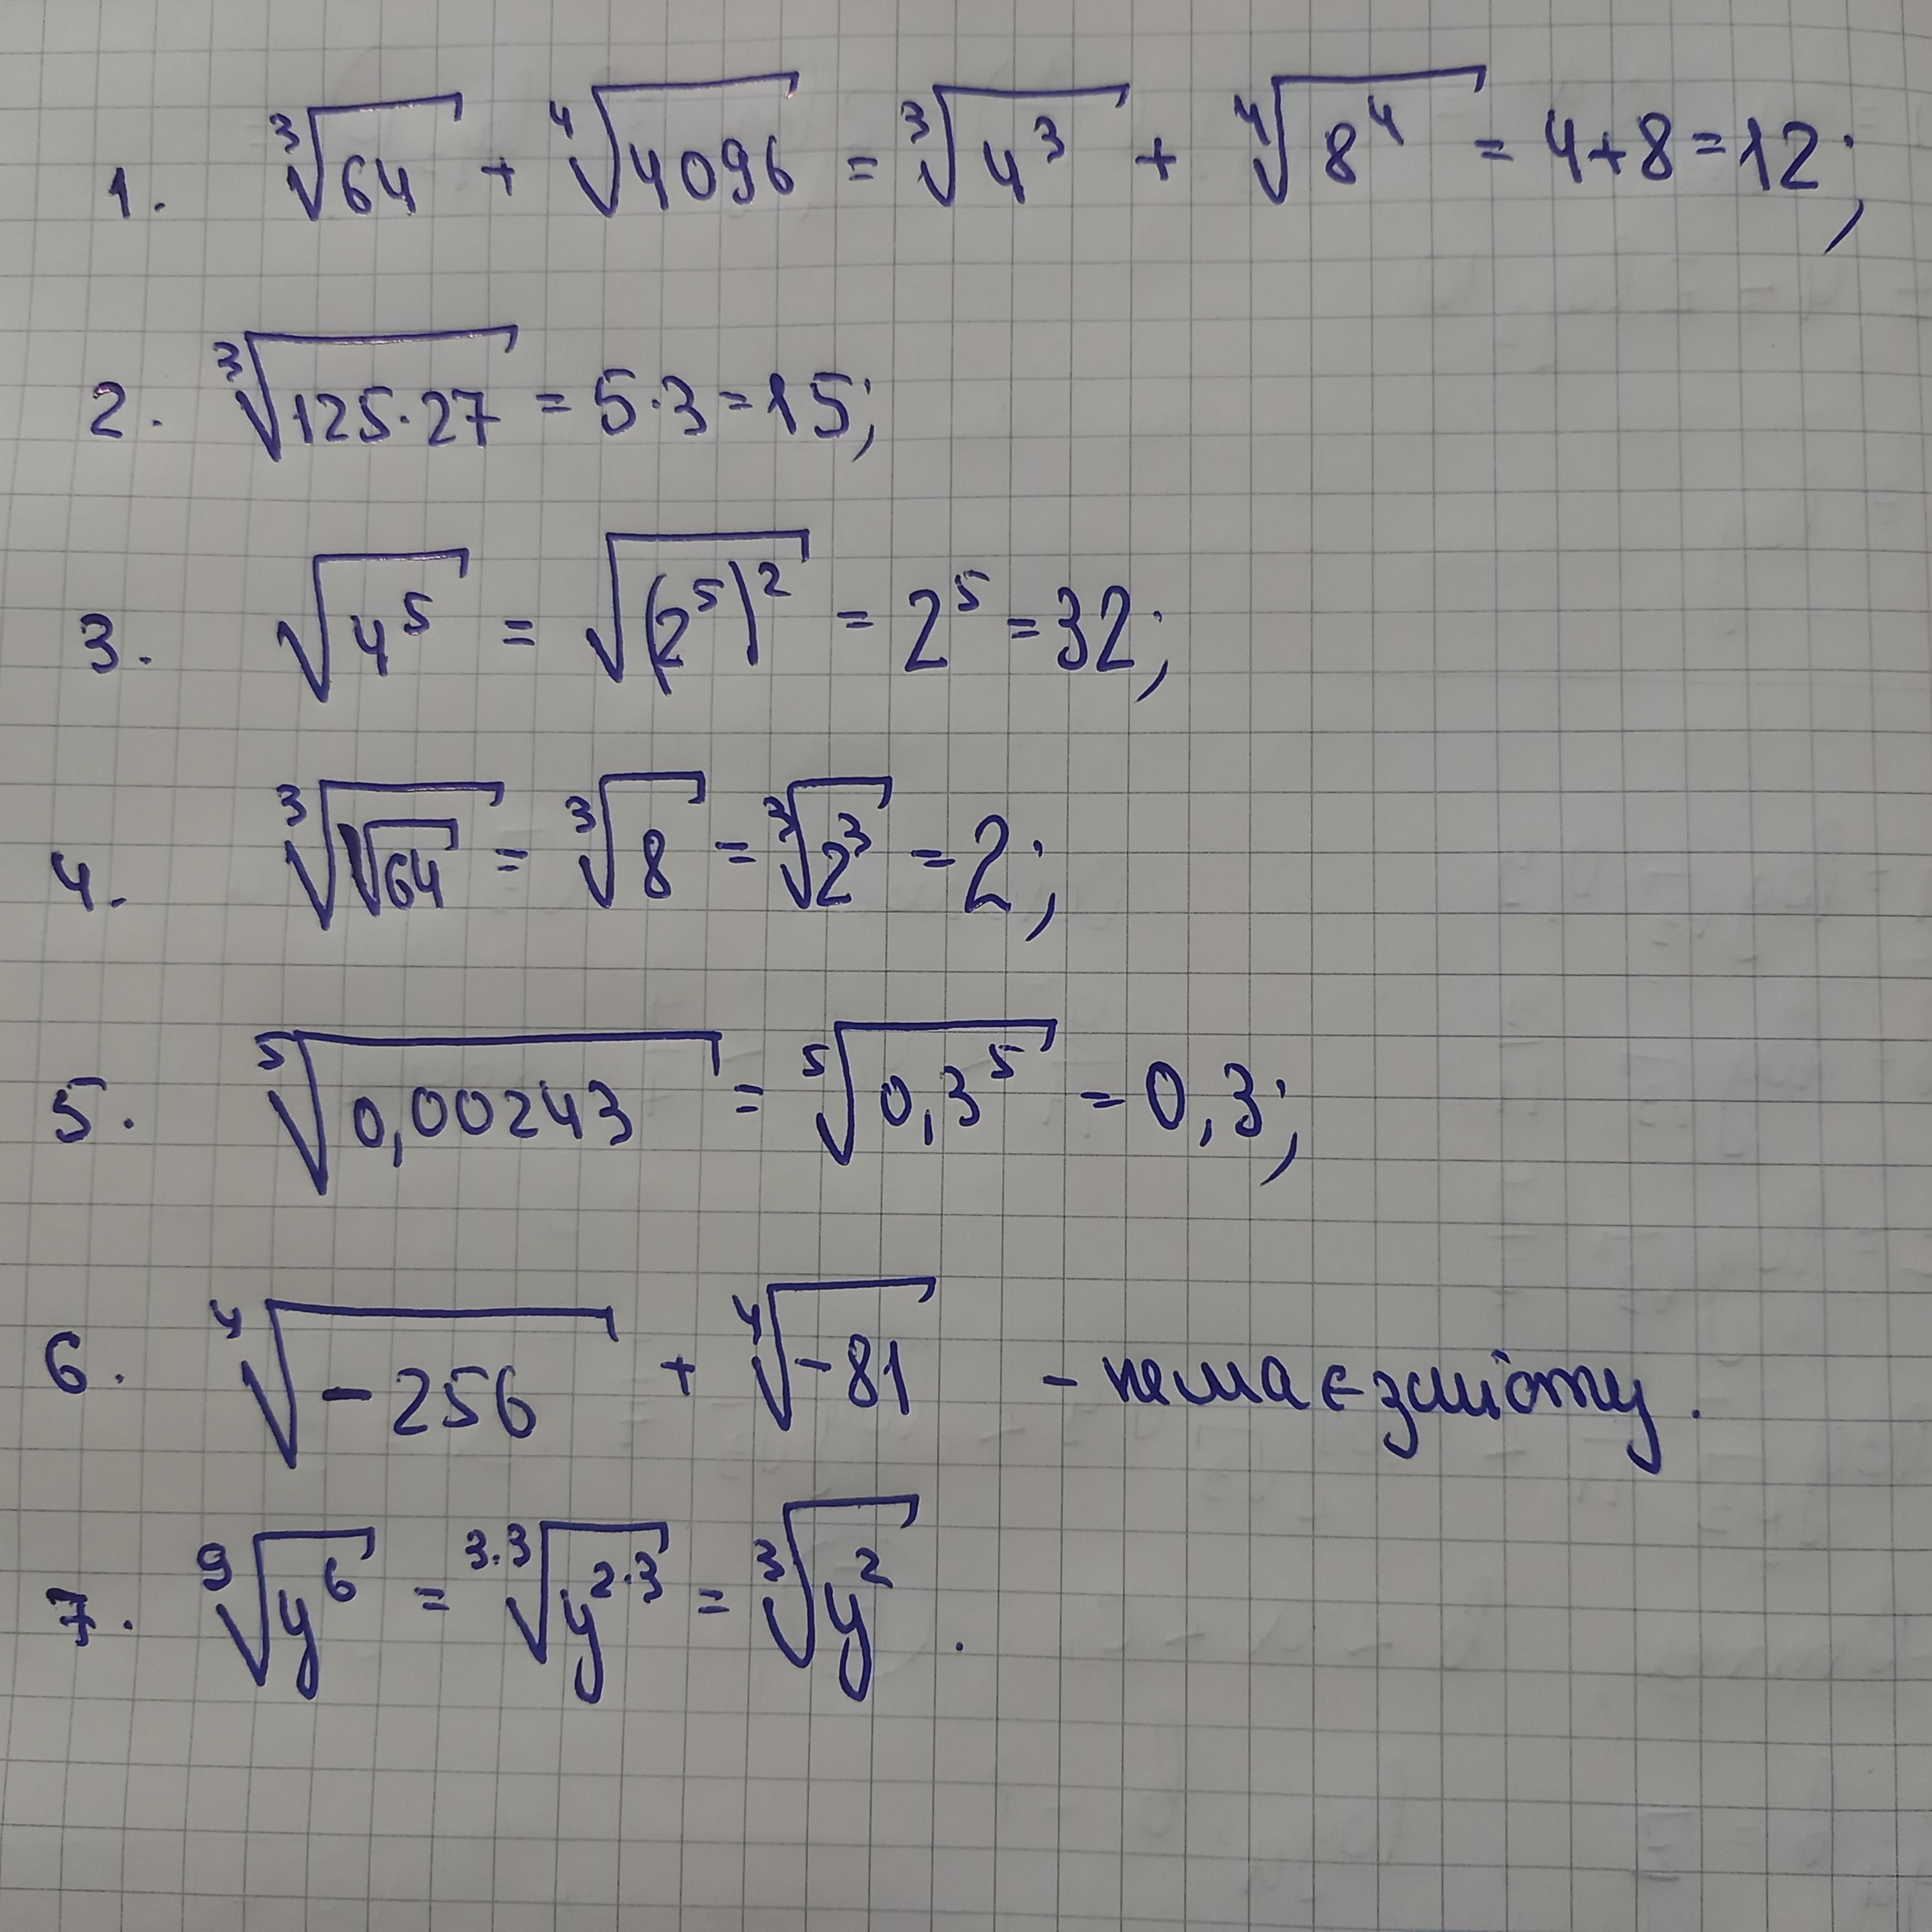 1. ∛64 + ∜4096 = ∛4³ + ∜8⁴ = 4+8=12;
2. ∛125·27 = 5·3=15;
3. √4⁵ = √(2⁵)² = 2⁵ =32;
4. ∛√64 = ∛8 = ∛2³ = 2;
5. ⁵√0,00243 = ⁵√0,3⁵ = 0,3;
6. ∜-256 + ∜-81 - немає змісту.
7. ⁹√y⁶ = ³·³√y²·³ = ∛y².